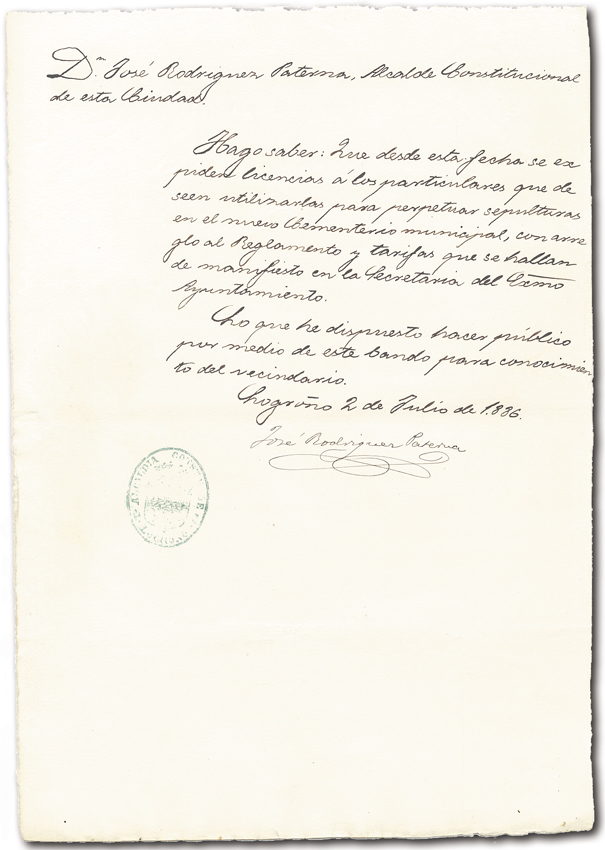 Dn. José Rodriguez Paterna, Alcalde Constitucional
de esta Ciudad.
Hago saber: Que desde esta fecha se ex
piden licencias á los particulares que de
seen utilizarlas para perpetuar sepulturas
en el nuevo Cementerio municipal, con arre
glo al Reglamento y tarifas que se hallan
de manifiesto en la Secretaria del Exmo
Ayuntamiento.
Lo que he dispuesto hacer público
por medio de este bando para conocimien
to del vecindario.
Logroño 2 de Julio de 1.886.
José Rodriguez Paterna
ALCALDIA